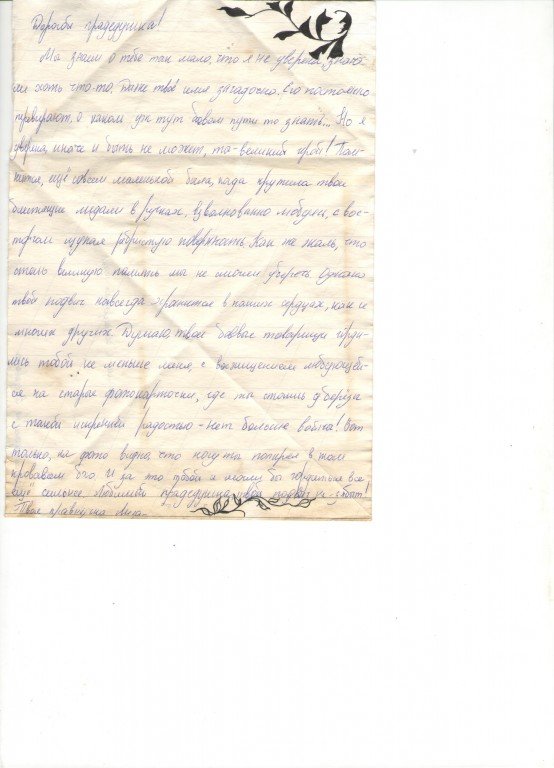 Дорогой прадедушка!
Мы знаем о тебе так мало, что я не уверена, знаем
ли хоть что-то. Даже твоё имя загадочно. Его постоянно
перевирают, о каком уж тут боевом пути то знать... Но я
уверена, иначе и быть не может, ты - великий герой! Пом-
нится, ещё совсем маленькой была, когда крутила твои
блестящие медали в руках, взволнованно любуясь, с вос-
торгом щупая ребристую поверхность. Как же жаль, что
столь великую память мы не смогли уберечь. Однако
твой подвиг навсегда хранится в наших сердцах, как и
многих других. Думаю, твои боевые товарищи горди-
лись тобой не меньше меня, с восхищением любующей-
ся на старые фотокарточки, где ты стоишь у берёзы
с такой искренней радостью - нет больше войны! Вот
только, на фото видно, что ногу ты потерял в том
кровавом бою. И за то тобой я могу гордиться все
ещё сильнее, любимый прадедушка, твой подвиг не забыт!
Твоя правнучка